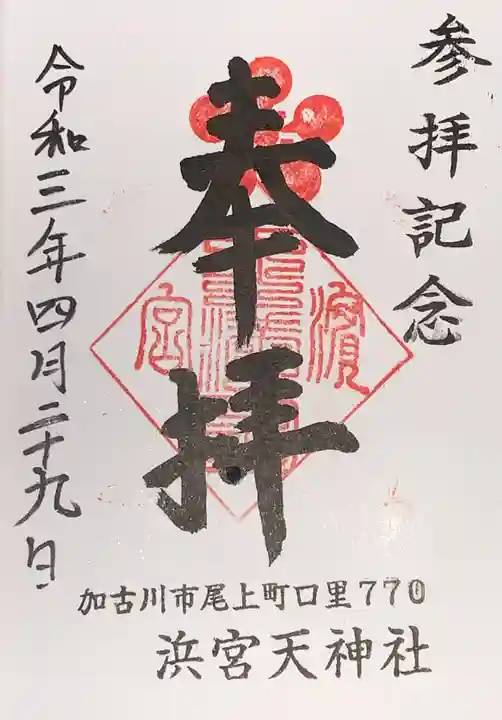 参拝記念
奉拝
濱宮
令和三年四月二十九日
加古川市尾上町口里770
浜宮天神社